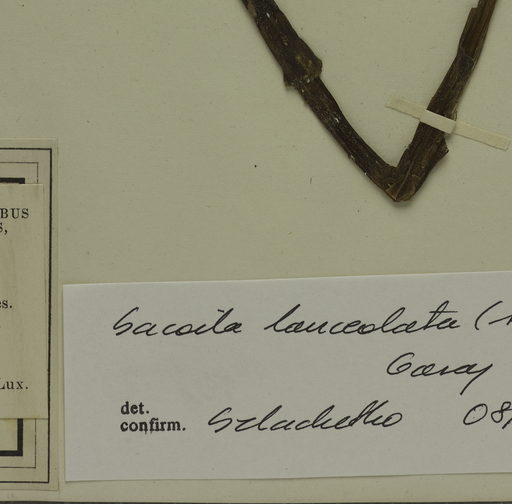 BUS
S,
es.
Lux.
Sacoila lanceolata (
Garay
det.
confirm. Szlachetko 08